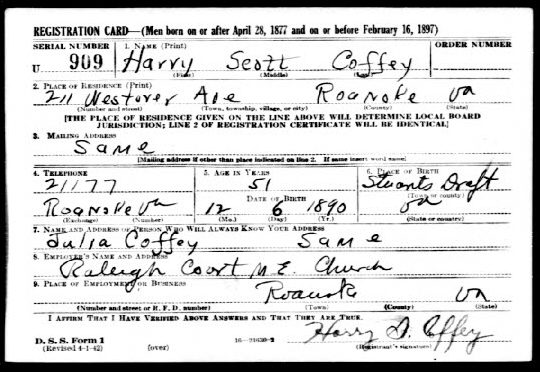 REGISTRATION CARD—(Men born on or after April 28, 1877 and on or before February 16, 1897)
SERIAL NUMBER
1. NAME (Print)
ORDER NUMBER
U 909
Harry Scott Coffey
(First) (Middle) (Last)
2. PLACE OF RESIDENCE (Print)
211 Westover Ave Roanoke va
(Number and street) (Town, township, village, or city) (County) (State)
[THE PLACE OF RESIDENCE GIVEN ON THE LINE ABOVE WILL DETERMINE LOCAL BOARD
JURISDICTION; LINE 2 OF REGISTRATION CERTIFICATE WILL BE IDENTICAL]
3. MAILING ADDRESS
Same
[Mailing address if other than place indicated on line 2. If same insert word same]
4. TELEPHONE
5. AGE IN YEARS
6. PLACE OF BIRTH
21177
51
Stuarts Draft
(Town or county)
DATE OF BIRTH
Roanoke va
12 6 1890
va
(Exchange) (Number)
(Mo.) (Day) (Yr.)
(State or country)
7. NAME AND ADDRESS OF PERSON WHO WILL ALWAYS KNOW YOUR ADDRESS
Julia Coffey Same
8. EMPLOYER'S NAME AND ADDRESS
Raleigh Court M.E. Church
9. PLACE OF EMPLOYMENT OR BUSINESS
Roanoke va
(Number and street or R. F. D. number) (Town) (County) (State)
I AFFIRM THAT I HAVE VERIFIED ABOVE ANSWERS AND THAT THEY ARE TRUE.
Harry S. Coffey
D. S. S. Form 1
(Revised 4-1-42) (over) 16—21630-2 (Registrant's signature)